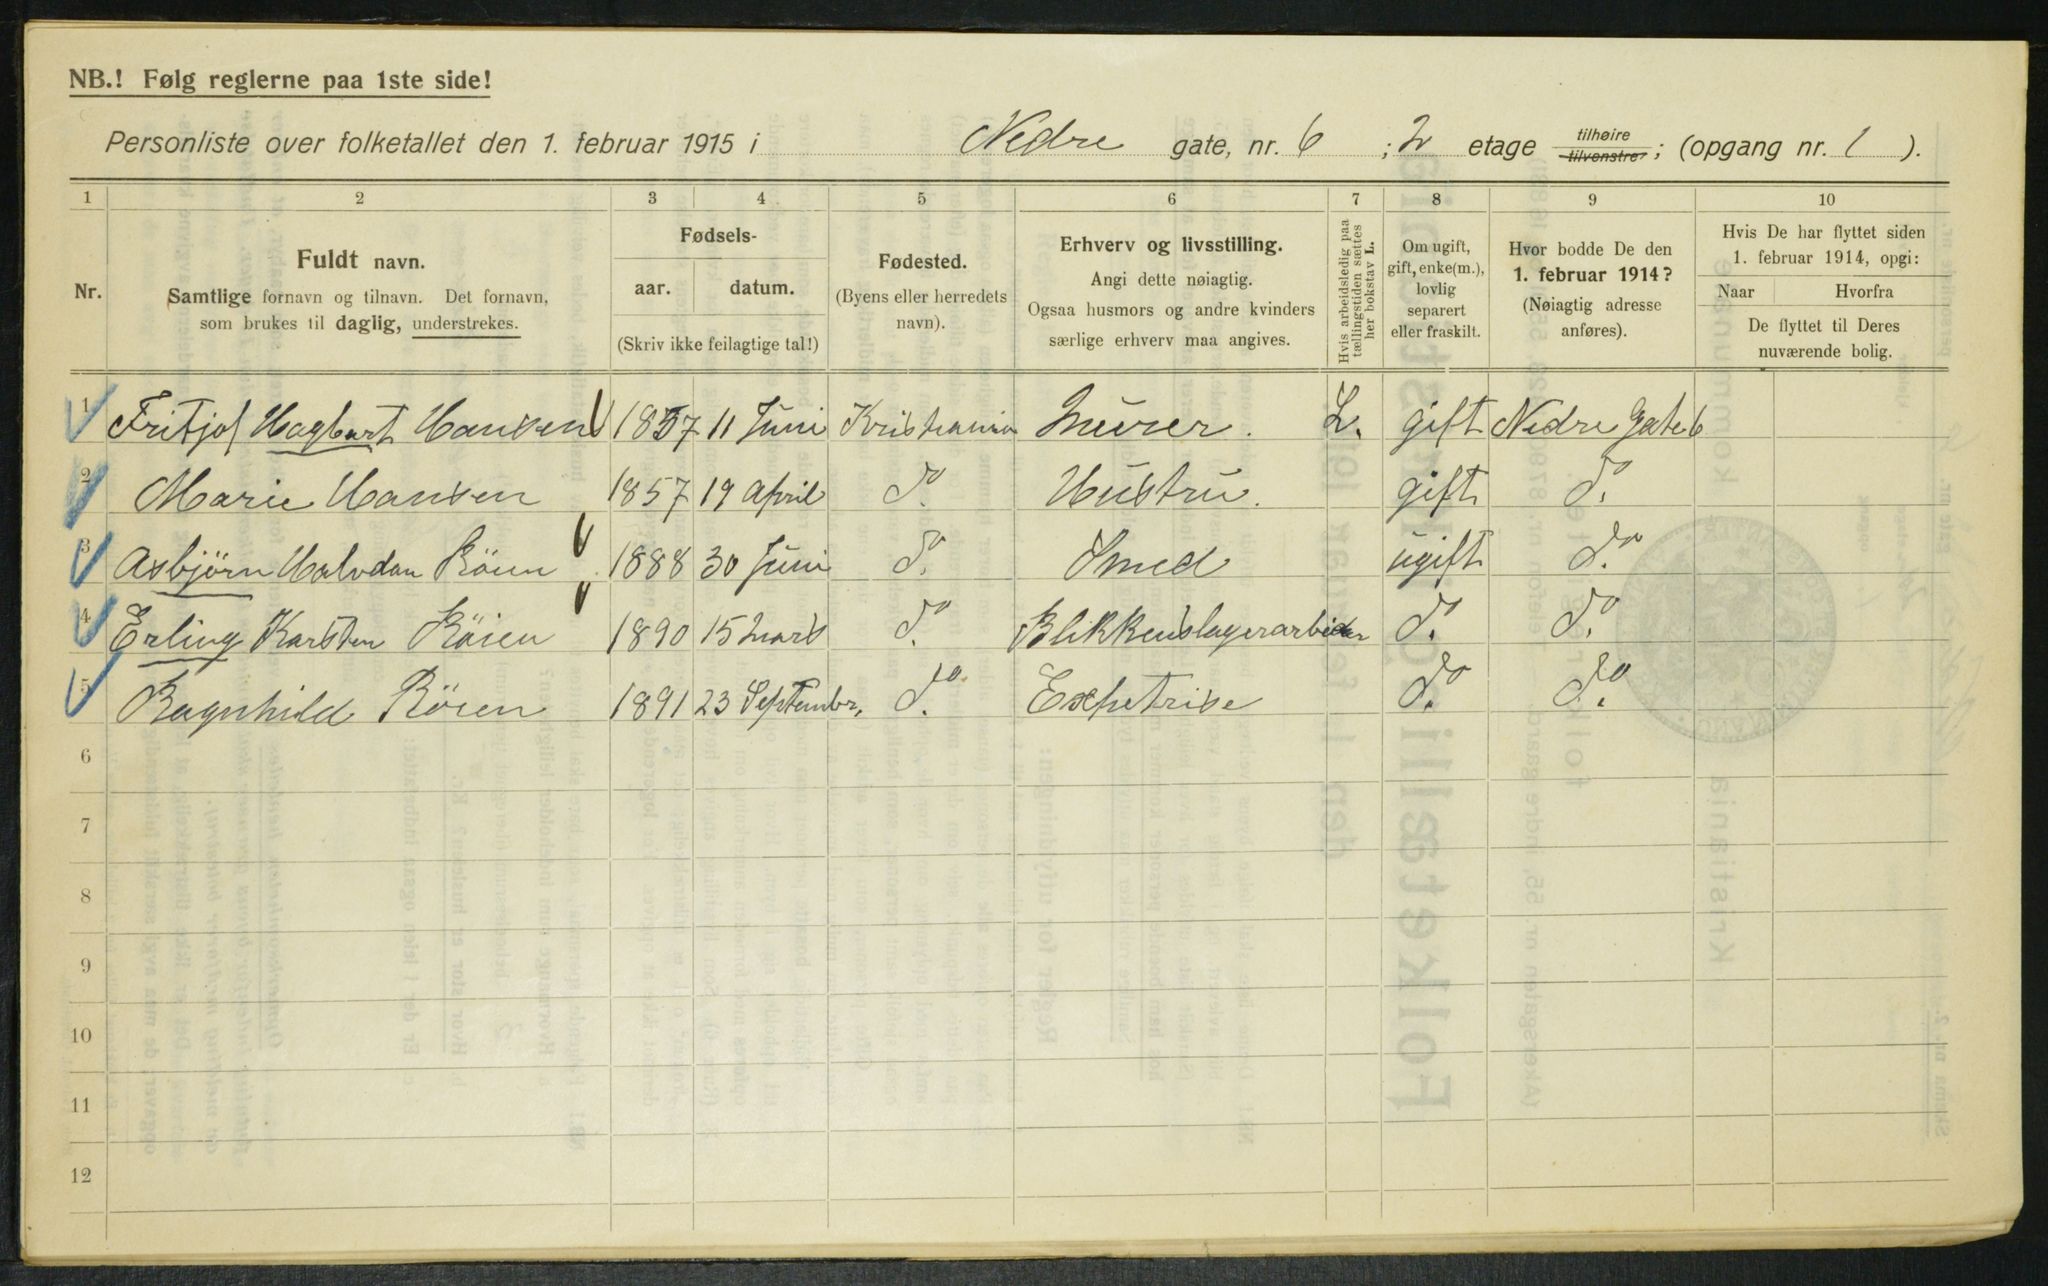 NB.! Følg reglerne paa 1ste side!
Personliste over folketallet den 1. februar 1915 i Nedre gate, nr. 6 ; 2 etage tilhøire tilvenstre ; (opgang nr. 1 ).
1 2 3 4 5 6 7 8 9 10
Nr.
Fuldt navn.
Samtlige fornavn og tilnavn. Det fornavn,
som brukes til daglig, understrekes.
Fødsels-
aar. datum.
(Skriv ikke feilagtige tal!)
Fødested.
(Byens eller herredets
navn).
Erhverv og livsstilling.
Angi dette nøiagtig.
Ogsaa husmors og andre kvinders
særlige erhverv maa angives.
Hvis arbeidsledig paa
tællingstiden sættes
her bokstav L.
Om ugift,
gift, enke(m.),
lovlig
separert
eller fraskilt.
Hvor bodde De den
1. februar 1914?
(Nøiagtig adresse
anføres).
Hvis De har flyttet siden
1. februar 1914, opgi:
Naar Hvorfra
De flyttet til Deres
nuværende bolig.
1 Fritjof Hagbart Hansen 1857 11 Juni Kristiania Murer. L. gift Nedre Gate 6
2 Marie Hansen 1857 19 April do. Hustru. gift do.
3 Asbjørn Halvdan Röien 1888 30 Juni do. Smed ugift do.
4 Erling Karsten Röien 1890 15 Mars do. Blikkenslagerarbeider do. do.
5 Ragnhild Röien 1891 23 September, do. Expetrise do. do.
6
7
8
9
10
11
12